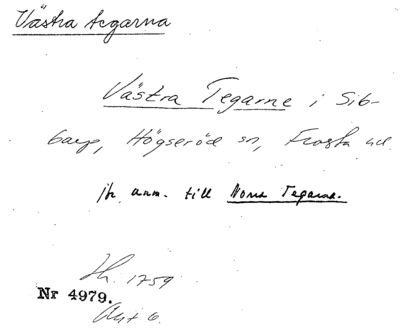 Västra tegarna
Västra Tegarne i Sib-
barp, Högseröd sn, Frosta hd.
jfr anm. till Norra Tegarna.
Sk. 1759
Nr 4979.
Akt 6.